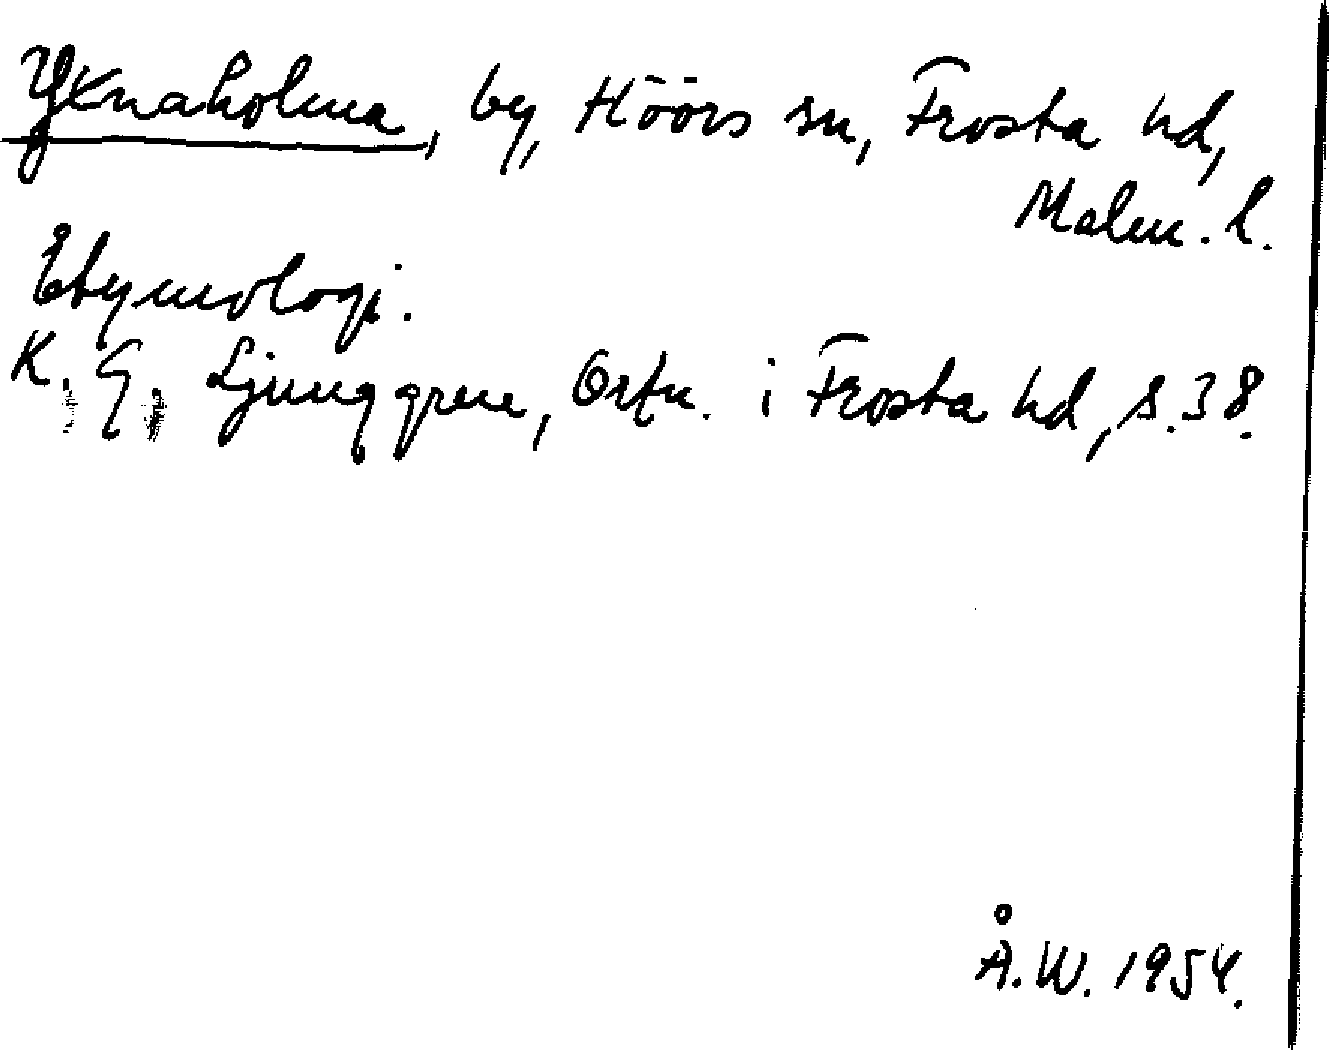 Yxnaholma, by, Höörs sn, Frosta hd,
Malm. l.
Etymologi.
K. G. Ljunggren, Ortn. i Frosta hd, s. 38.
Å. W. 1954.